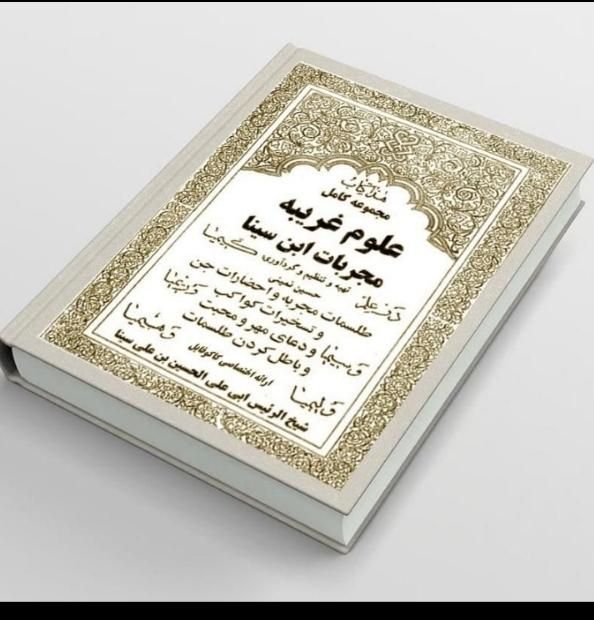 هذا کتاب
مجموعه کامل
علوم غریبه
مجربات ابن سینا
کیمیا
تهیه و تنظیم و گردآوری
حسین نمینی
طلسمات مجربه و احضارات جن
و تسخیرات کواکب
و سیمیا
و دعای مهر و محبت
و هیمیا
و باطل کردن طلسمات
ارائه اختصاصی کاکوفایل
و لیمیا
شیخ الرئیس ابی علی الحسین بن علی سینا